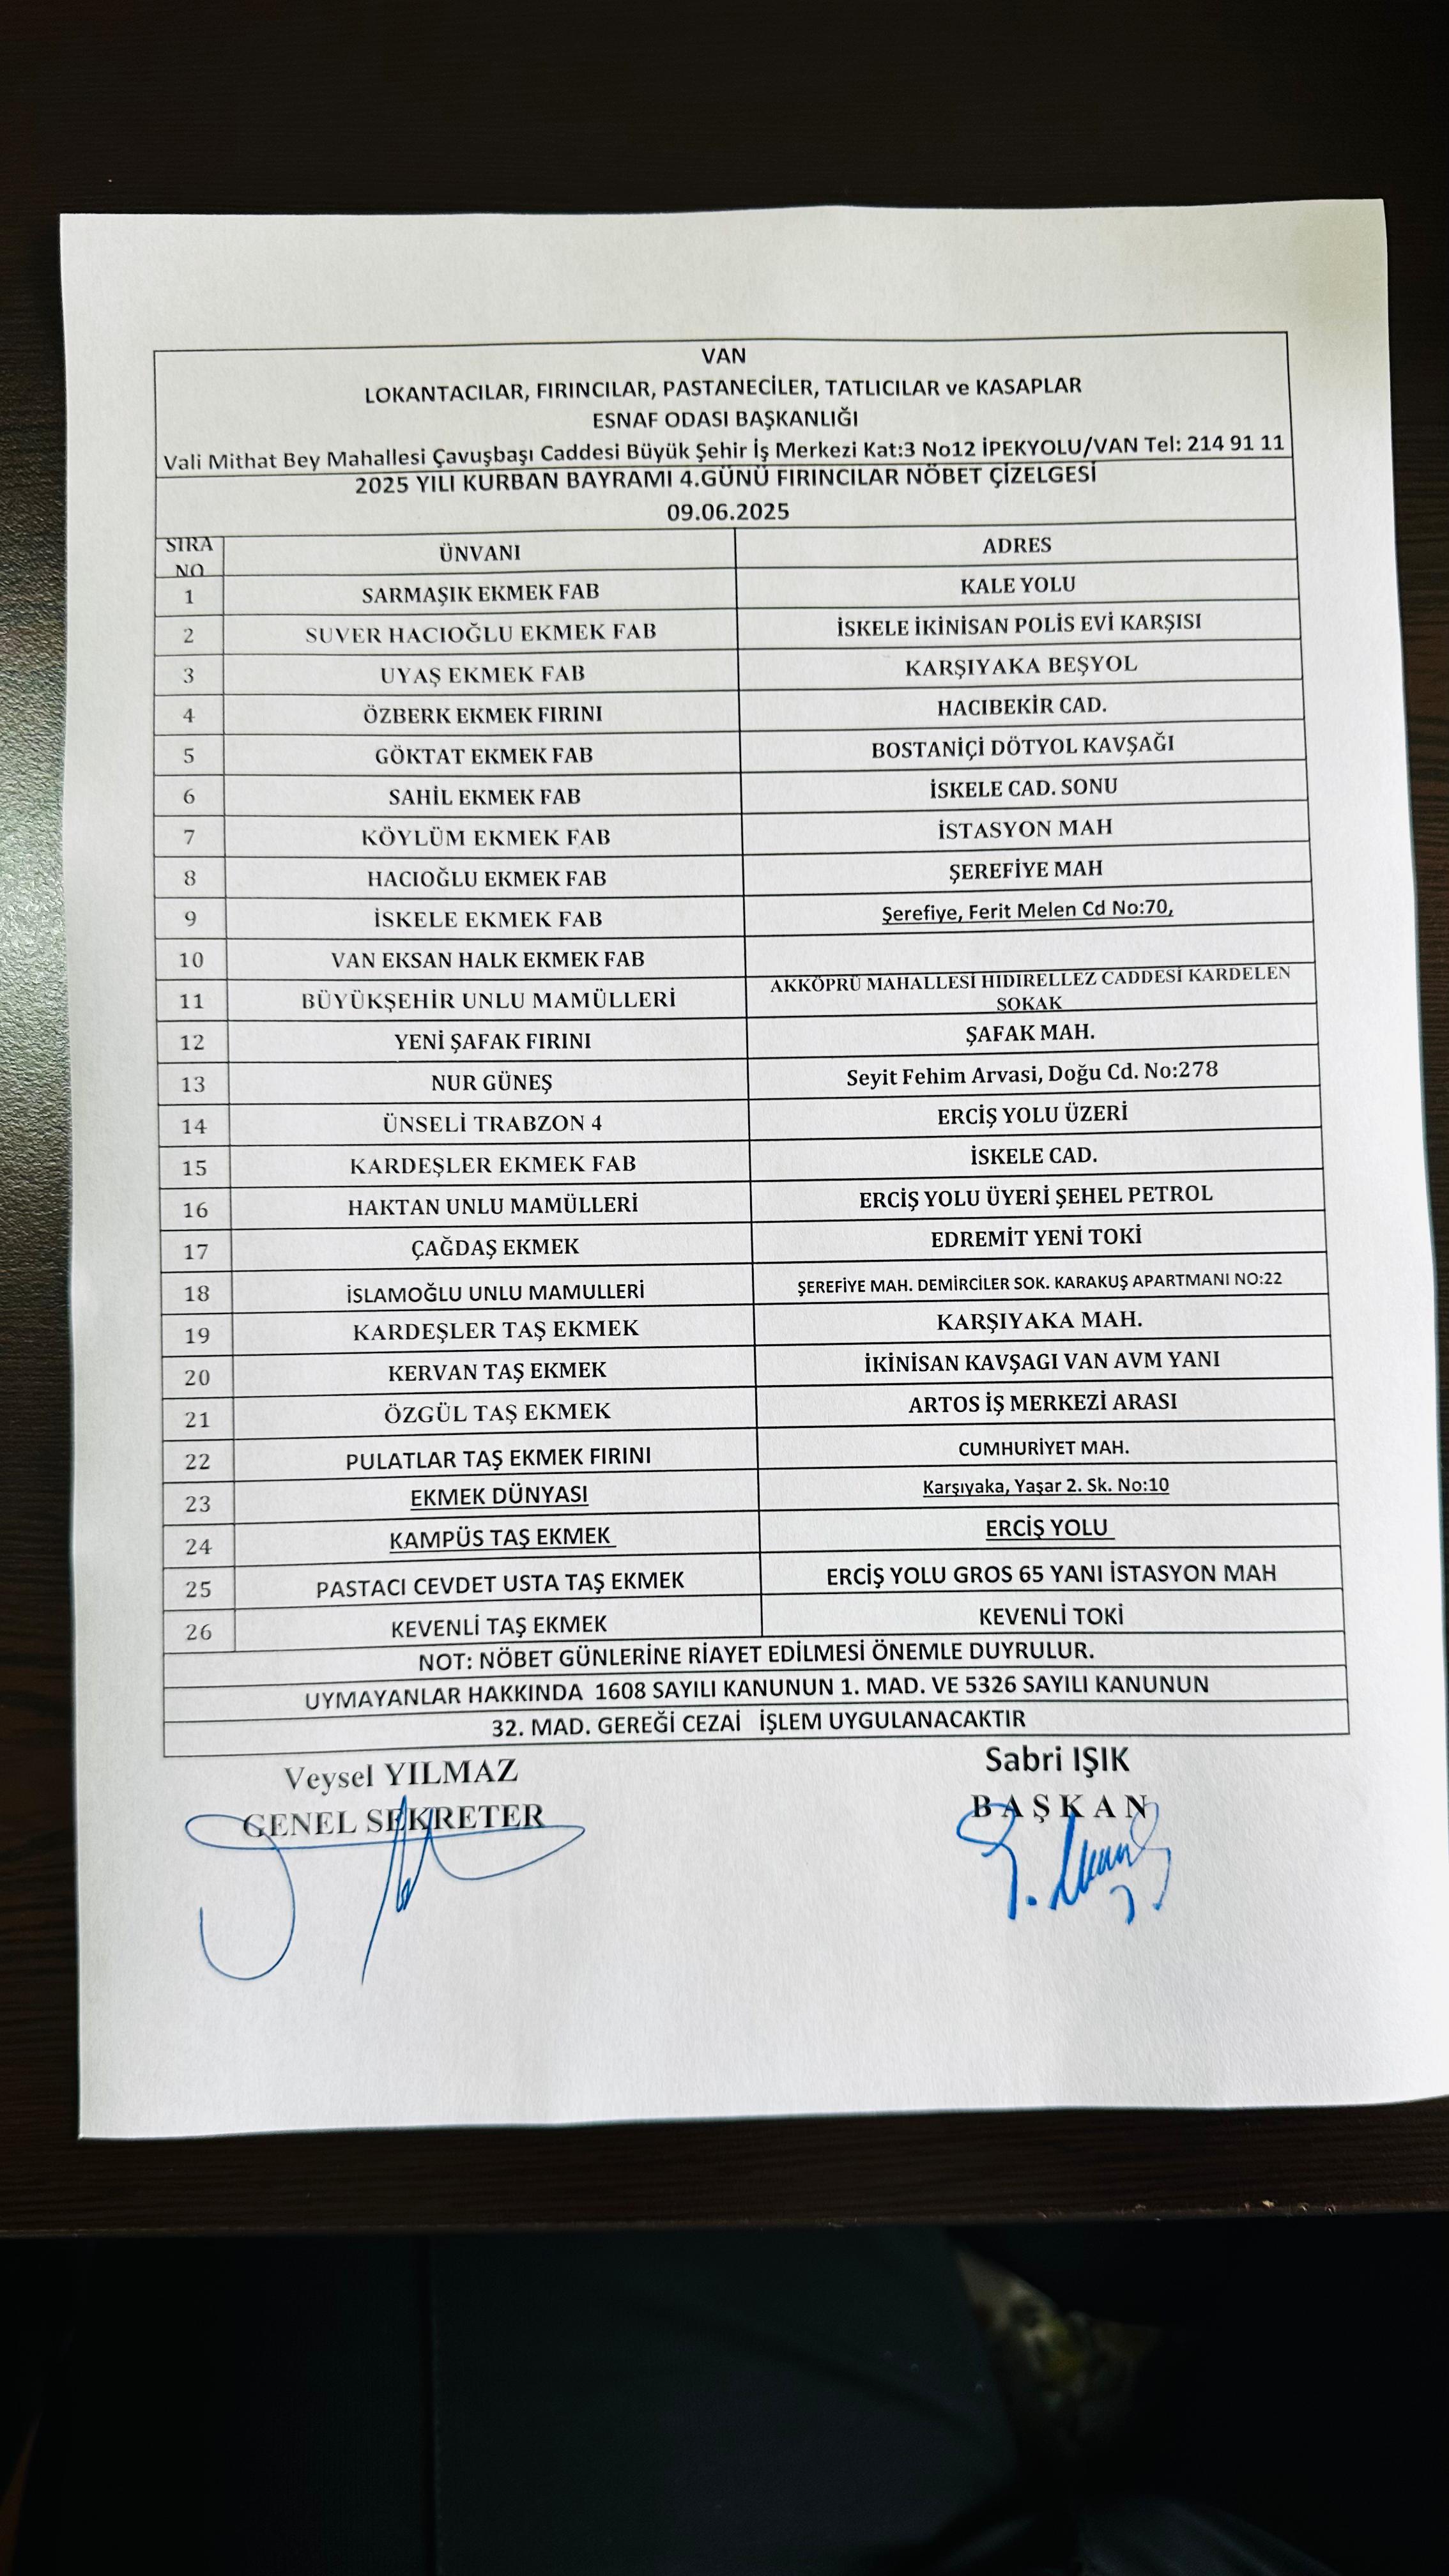 VAN
LOKANTACILAR, FIRINCILAR, PASTANECİLER, TATLICILAR ve KASAPLAR
ESNAF ODASI BAŞKANLIĞI
Vali Mithat Bey Mahallesi Çavuşbaşı Caddesi Büyük Şehir İş Merkezi Kat:3 No12 İPEKYOLU/VAN Tel: 214 91 11
2025 YILI KURBAN BAYRAMI 4.GÜNÜ FIRINCILAR NÖBET ÇİZELGESİ
09.06.2025
SIRA NO ÜNVANI ADRES
1 SARMAŞIK EKMEK FAB KALE YOLU
2 SUVER HACIOĞLU EKMEK FAB İSKELE İKİNİSAN POLİS EVİ KARŞISI
3 UYAŞ EKMEK FAB KARŞIYAKA BEŞYOL
4 ÖZBERK EKMEK FIRINI HACIBEKİR CAD.
5 GÖKTAT EKMEK FAB BOSTANİÇİ DÖTYOL KAVŞAĞI
6 SAHİL EKMEK FAB İSKELE CAD. SONU
7 KÖYLÜM EKMEK FAB İSTASYON MAH
8 HACIOĞLU EKMEK FAB ŞEREFİYE MAH
9 İSKELE EKMEK FAB Şerefiye, Ferit Melen Cd No:70,
10 VAN EKSAN HALK EKMEK FAB
11 BÜYÜKŞEHİR UNLU MAMÜLLERİ AKKÖPRÜ MAHALLESİ HIDIRELLEZ CADDESİ KARDELEN SOKAK
12 YENİ ŞAFAK FIRINI ŞAFAK MAH.
13 NUR GÜNEŞ Seyit Fehim Arvasi, Doğu Cd. No:278
14 ÜNSELİ TRABZON 4 ERCİŞ YOLU ÜZERİ
15 KARDEŞLER EKMEK FAB İSKELE CAD.
16 HAKTAN UNLU MAMÜLLERİ ERCİŞ YOLU ÜYERİ ŞEHEL PETROL
17 ÇAĞDAŞ EKMEK EDREMİT YENİ TOKİ
18 İSLAMOĞLU UNLU MAMULLERİ ŞEREFİYE MAH. DEMİRCİLER SOK. KARAKUŞ APARTMANI NO:22
19 KARDEŞLER TAŞ EKMEK KARŞIYAKA MAH.
20 KERVAN TAŞ EKMEK İKİNİSAN KAVŞAGI VAN AVM YANI
21 ÖZGÜL TAŞ EKMEK ARTOS İŞ MERKEZİ ARASI
22 PULATLAR TAŞ EKMEK FIRINI CUMHURİYET MAH.
23 EKMEK DÜNYASI Karşıyaka, Yaşar 2. Sk. No:10
24 KAMPÜS TAŞ EKMEK ERCİŞ YOLU
25 PASTACI CEVDET USTA TAŞ EKMEK ERCİŞ YOLU GROS 65 YANI İSTASYON MAH
26 KEVENLİ TAŞ EKMEK KEVENLİ TOKİ
NOT: NÖBET GÜNLERİNE RİAYET EDİLMESİ ÖNEMLE DUYRULUR.
UYMAYANLAR HAKKINDA 1608 SAYILI KANUNUN 1. MAD. VE 5326 SAYILI KANUNUN
32. MAD. GEREĞİ CEZAİ İŞLEM UYGULANACAKTIR
Veysel YILMAZ Sabri IŞIK
GENEL SEKRETER BAŞKAN